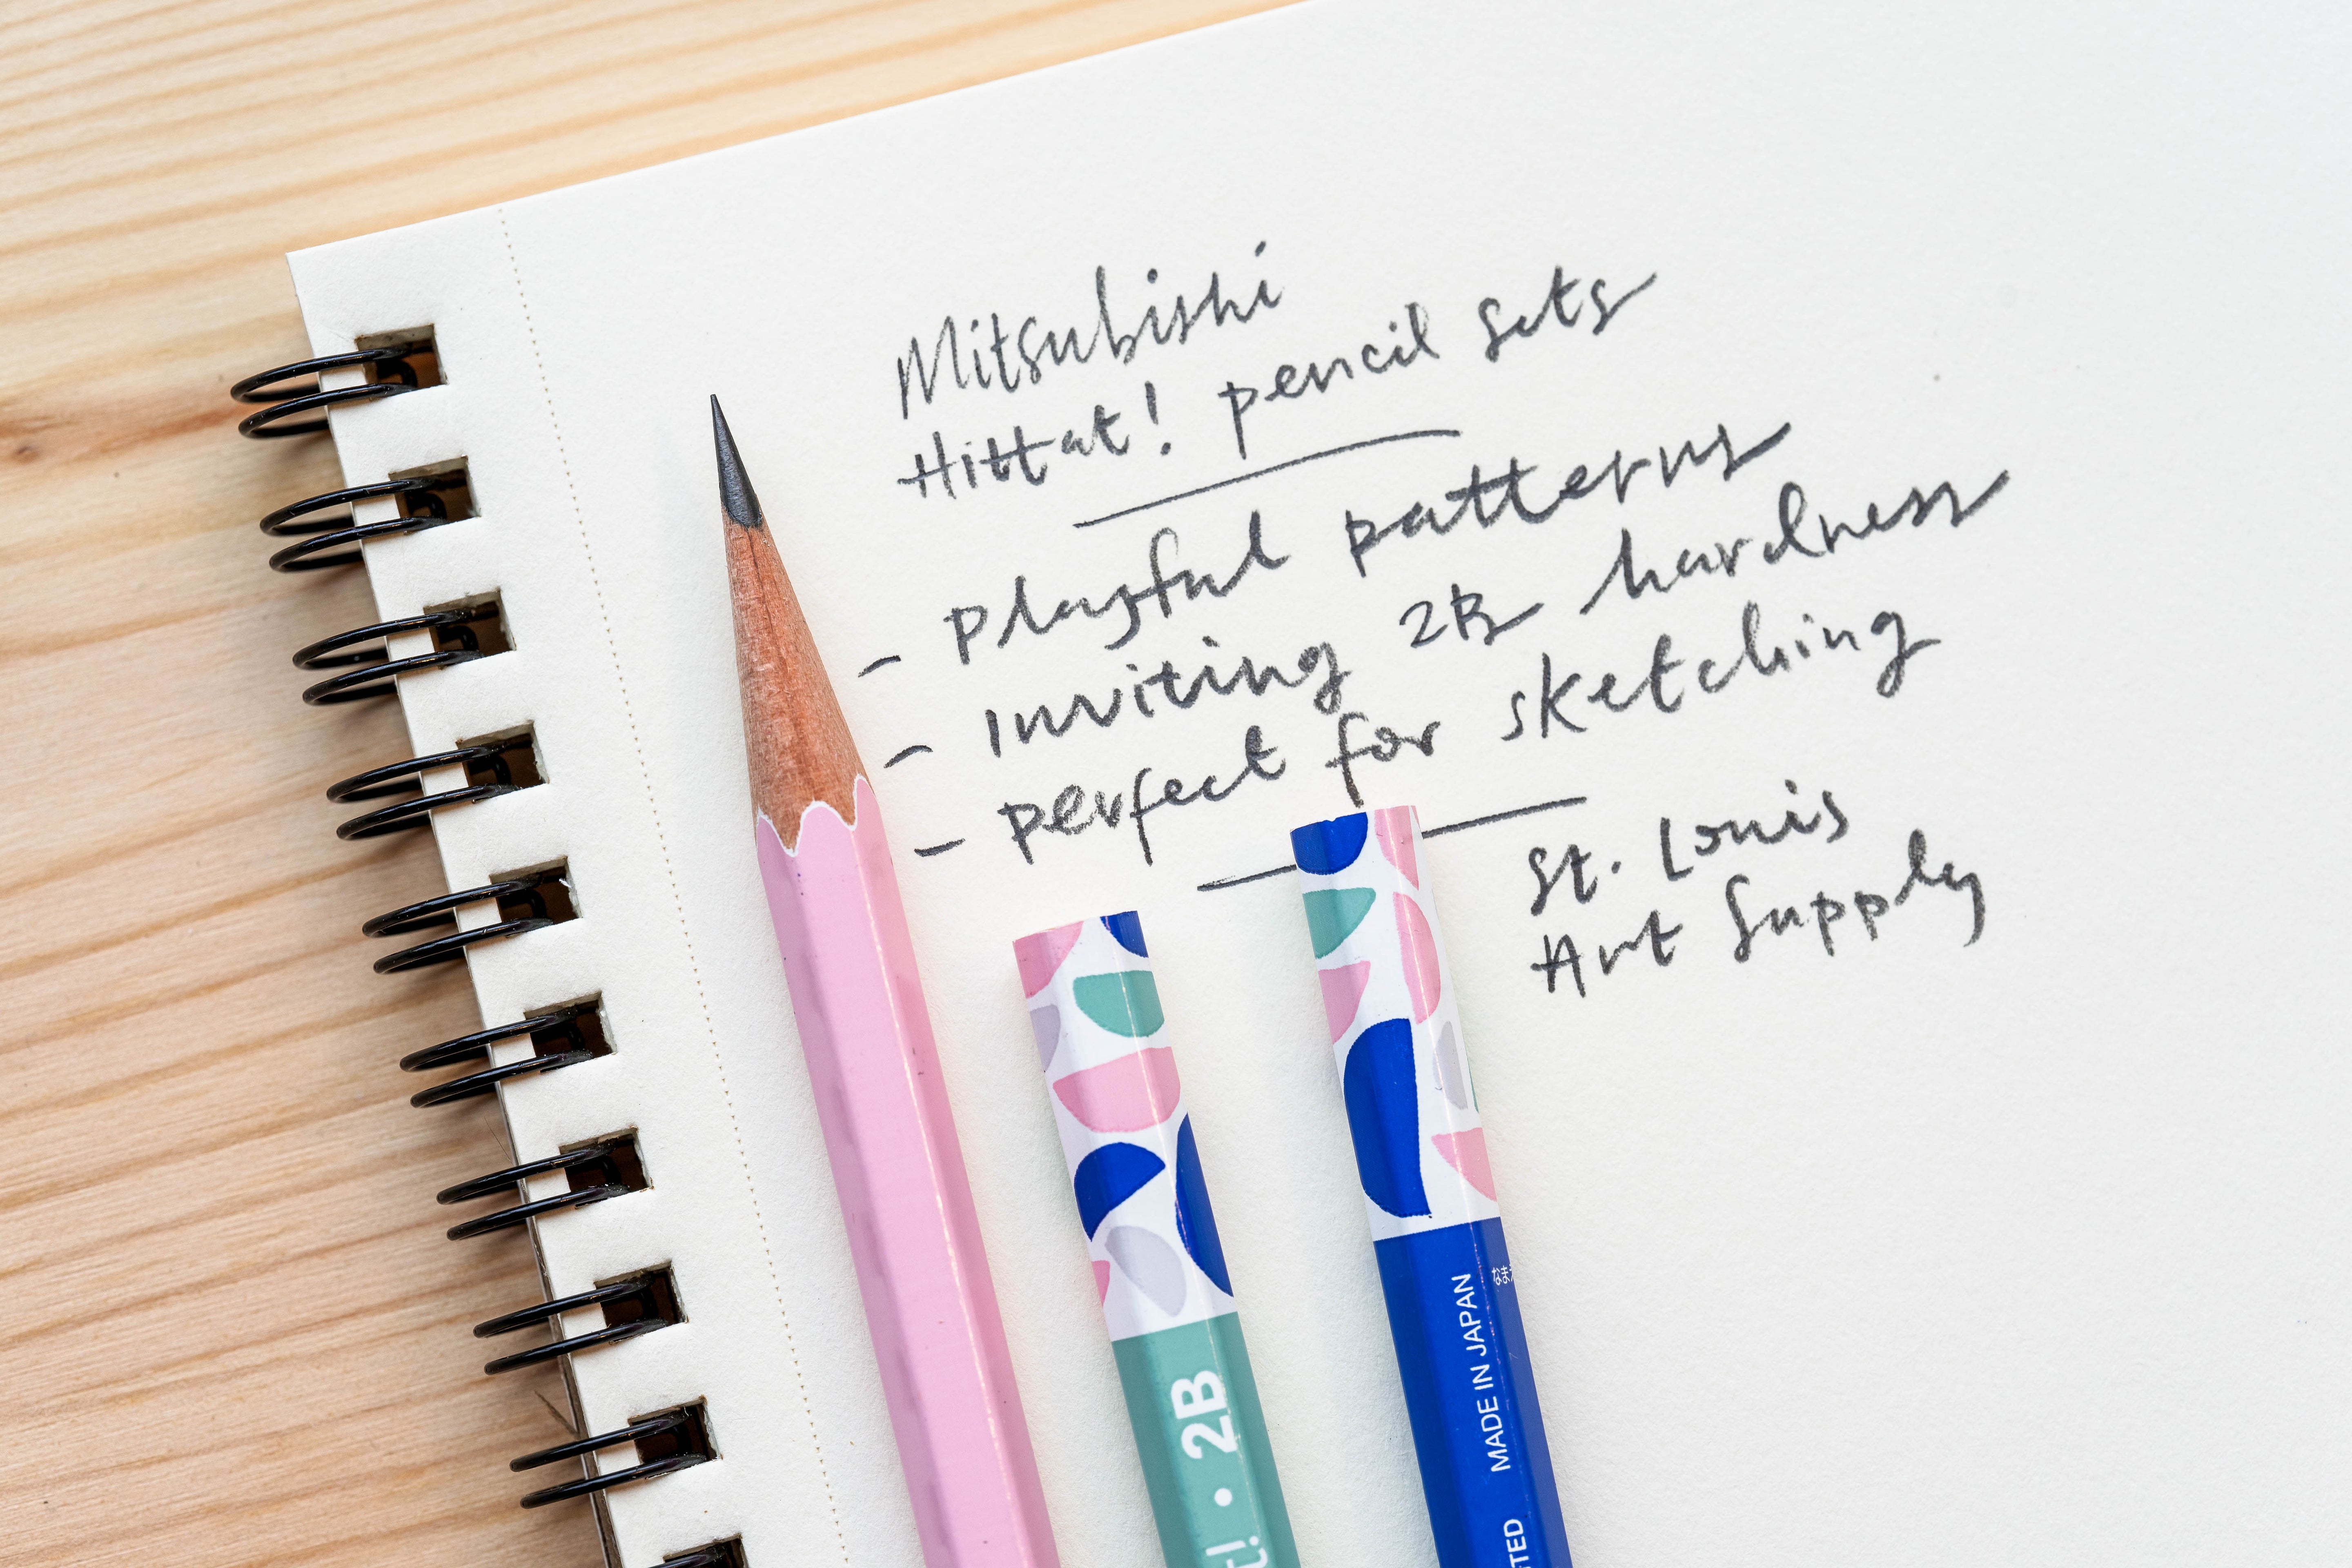 Mitsubishi
Hittat! pencil sets
- playful patterns
- inviting 2B hardness
- perfect for sketching
St. Louis
Art Supply
t! • 2B
TED MADE IN JAPAN